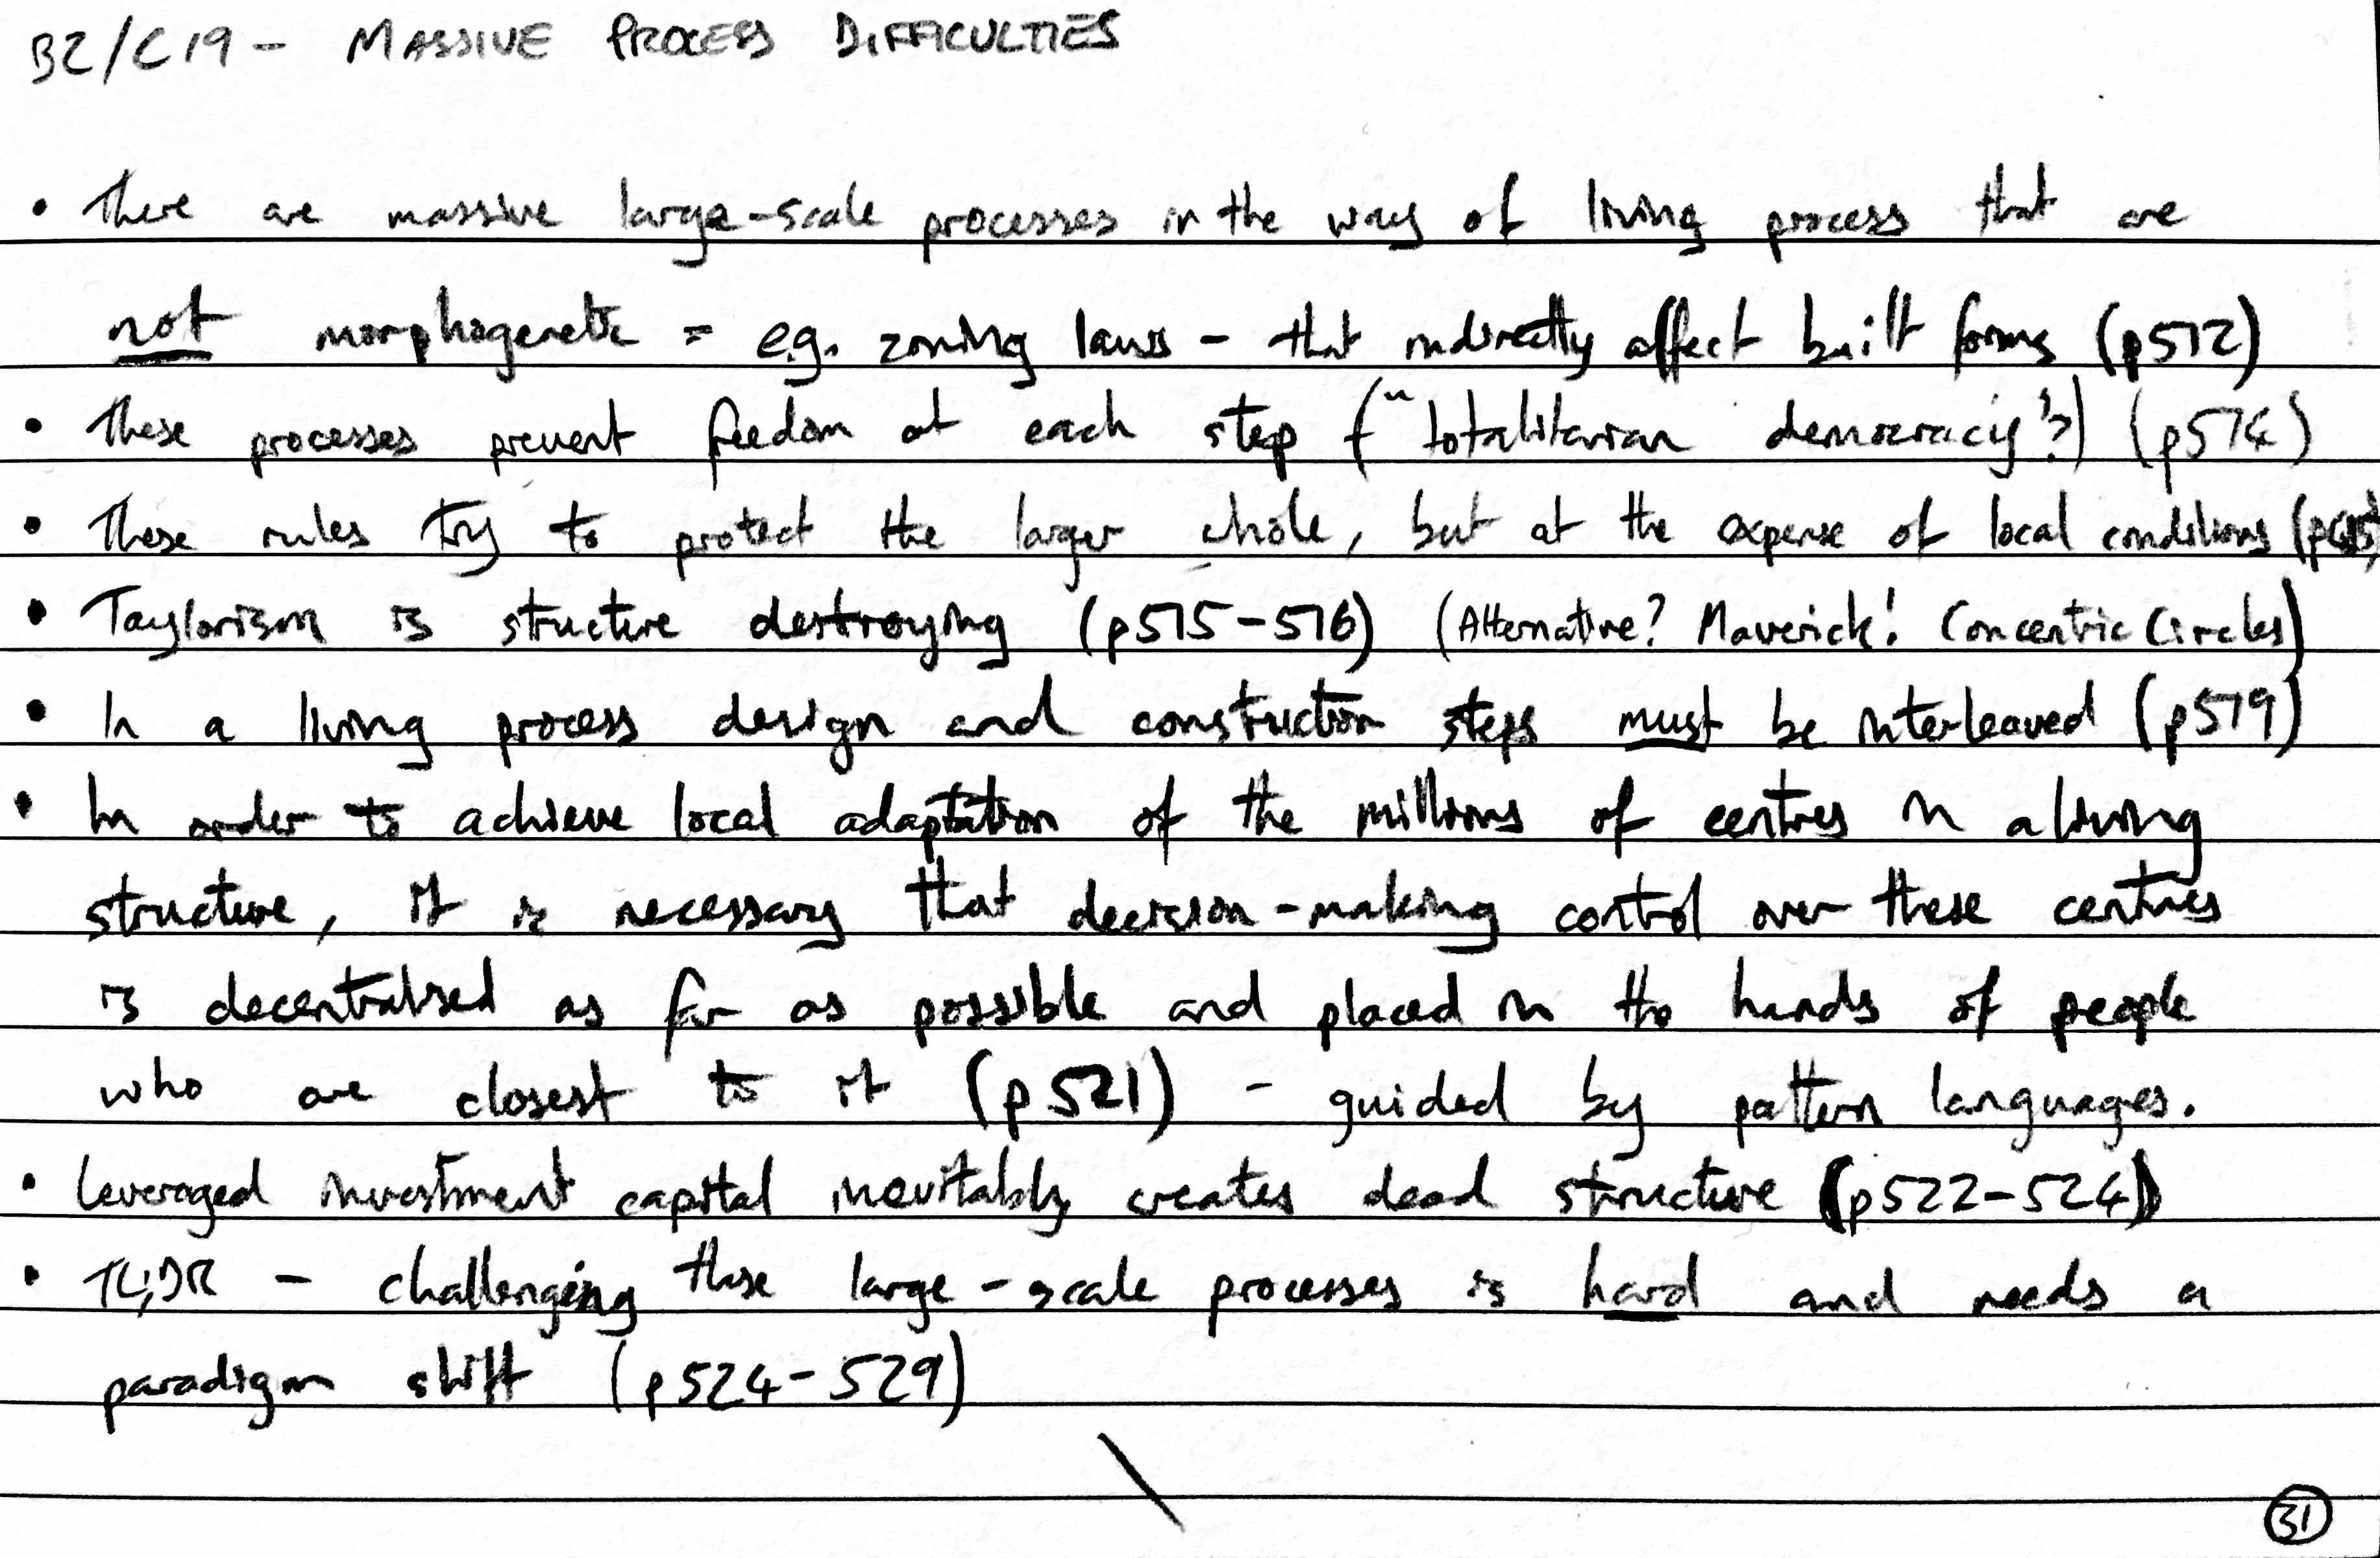 B2/C19 - MASSIVE PROCESS DIFFICULTIES
• There are massive large-scale processes in the way of living process that are
not morphogenetic = e.g. zoning laws - that indirectly affect built forms (p512)
• These processes prevent freedom at each step ("totalitarian democracy"?) (p514)
• These rules try to protect the larger whole, but at the expense of local conditions
• Taylorism is structure destroying (p515-516) (Alternative? Maverick! Concentric Circles)
• In a living process design and construction steps must be interleaved (p519)
• In order to achieve local adaptation of the millions of centres in a living
structure, it is necessary that decision-making control over these centres
is decentralised as far as possible and placed in the hands of people
who are closest to it (p521) - guided by pattern languages.
• Leveraged investment capital inevitably creates dead structure (p522-524)
• TL;DR - challenging these large-scale processes is hard and needs a
paradigm shift (p524-529)
31